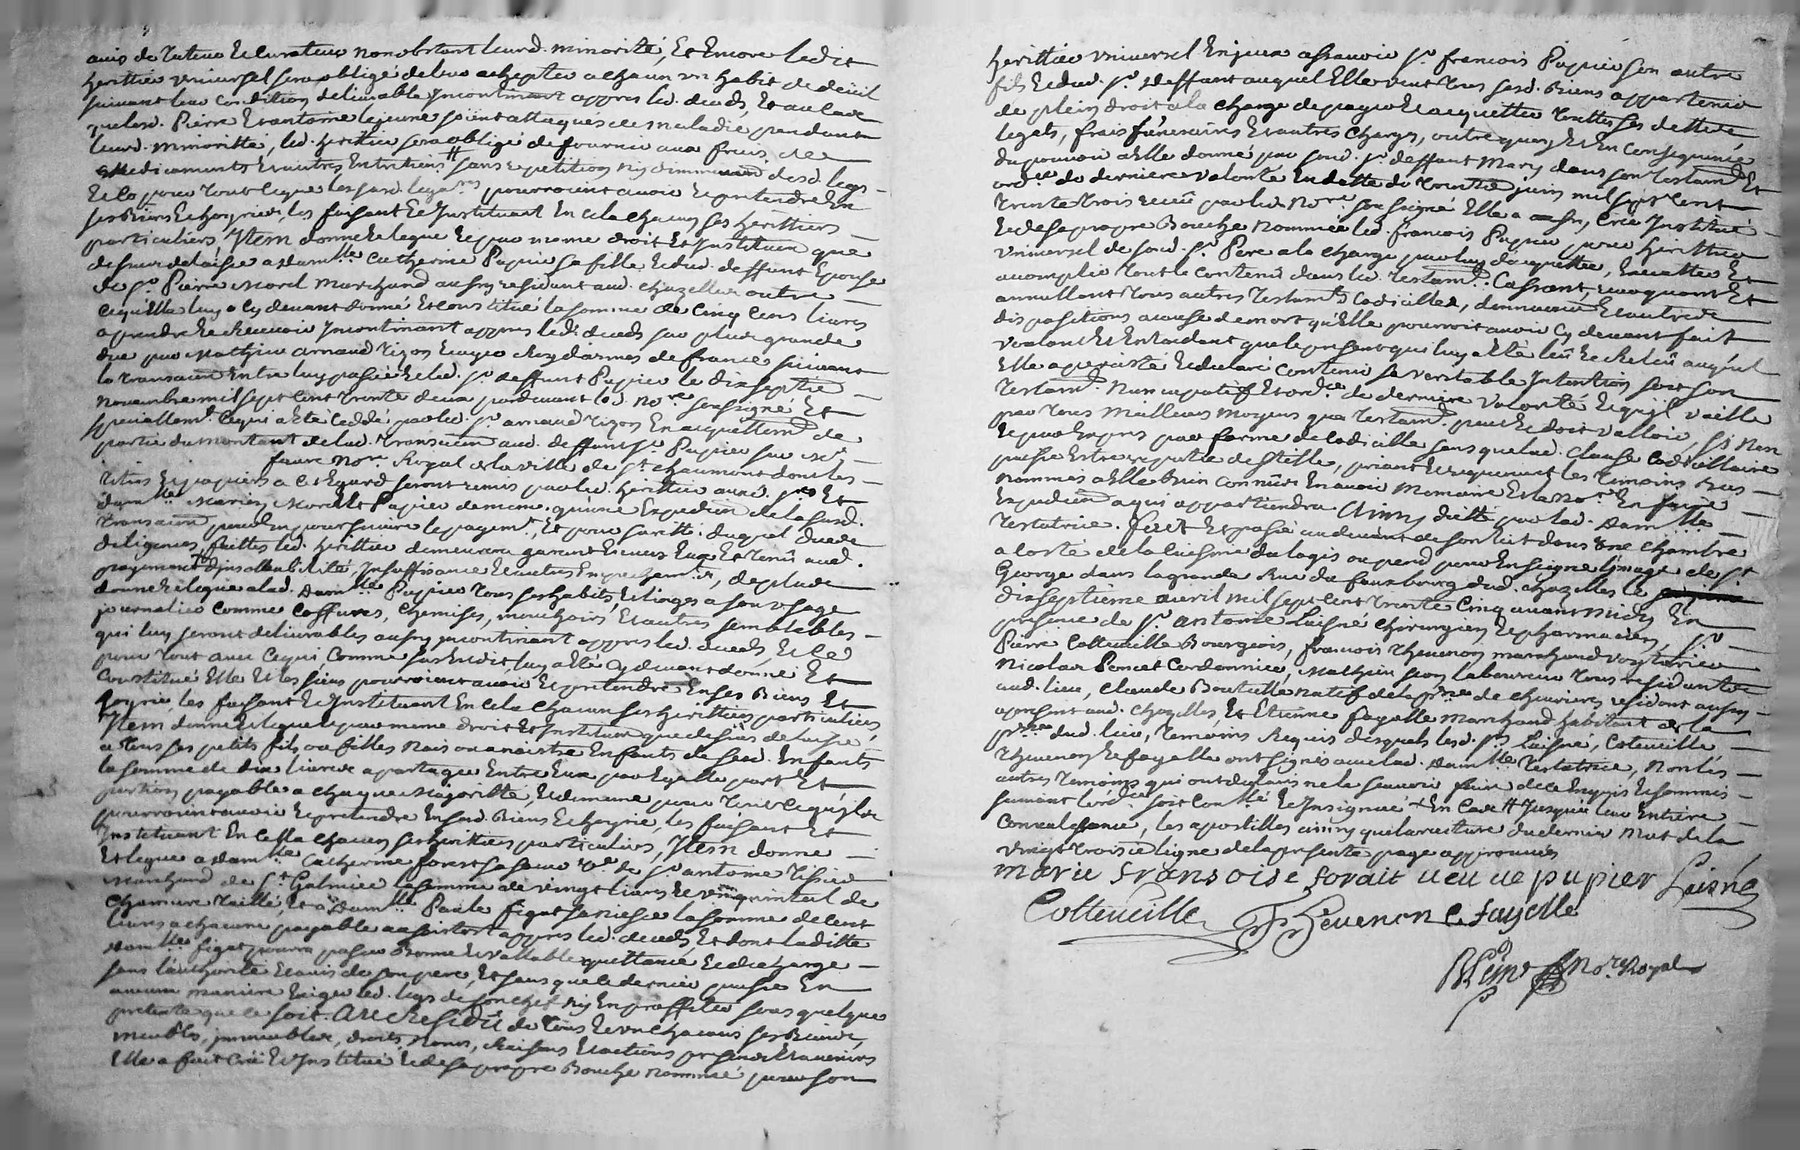 avis de tuteur et curateur nonobstant leurd. minorité, Et Encore ledit
heritier universel sera obligé de leur achepter a chacun un habit de deüil
suivant leur condition delivrable Incontinant appres led. deceds, Et au cas
que lesd. Pierre Et antoine le jeune soient attaqués de maladie pendant
leurd. minoritté, led. heritier sera obligé de fournir aux frais de
medicaments Et autres Entretiens # sans repetition ny diminuon desd. legs
Et ce pour tout ce que les susd. legatres pourroient avoir Et pretendre En
ses Biens Et hoyries, les faisant Et Instituant En cela chacun ses heritiers
particuliers, Item donne Et legue Et par meme droit Et Institution que
dessus delaisse a damlle Catherine Pupier sa fille Et dud. deffunt Epouse
de sr. Pierre Morel Marchand aussy residant aud. Chazelles outre
ce qu'Elle luy a cy devant donné Et constitué la somme de cinq cens livres
a prendre Et recevoir Incontinant appres led. deceds sur plus grande
düe par Mathieu arnaud tizon Ecuyer Roy d'armes de france suivant
la transaction Entre luy passée Et led. sr. deffunt Pupier le dixseptie
novembre mil sept cent trente deux pardevant led. nore soussigné Et
specialemt. ce qui a Eté ceddé par led. sr arnaud tizon En acquittemt de
partie du montant de lad. transaction aud. deffunt sr. Pupier sur Me
faure nore Royal de la ville de st chaumont dont les
titres Et papiers a cet Egard seront remis par led. heritier auxd.
damlle Mariez Morel Et Pupier de meme qu'une Expedition de la susd.
transaction pour En poursuivre le payemt, Et pour
diligences faittes led. heritier demeurera garant Envers Eux Et tenu aud.
payement d'insolvabilité, Insuffisance Et autres Empechemts, de plus
donne Et legue a lad. damlle Pupier tous ses habits Et linges a son usage
journalier comme coeffures, chemises, mouchoirs Et autres semblables
qui luy seront delivrables aussy incontinant appres led. deceds, Et ce
pour tout avec ce qui comme sus Est dit luy a Eté cy devant donné Et
constitué Elle Et les siens pourroient avoir Et pretendre En ses Biens Et
hoyrie, les faisant Et Instituant En cela chacun ses heritiers particuliers,
Item donne Et legue Et par meme droit Et Institution que dessus delaisse
a tous ses petits fils ou filles nais ou a naistre Enfants de sesd. Enfants
la somme de dix livres a partager Entre Eux par Egalle part Et
portion payable a chaque Majoritté, Et de meme pour tout ce qu'ils
pourroient avoir Et pretendre En sesd. Biens Et hoyrie, les faisant Et
Instituant En cella chacun ses heritiers particuliers, Item donne
Et legue a damlle Catherine forest sa soeur Ve de sr antoine
Marchand de st. Galmier la somme de vingt livres Et un quintal de
chanvre taillé, Et a damlle Paule figat sa niesse la somme de cent
livres a chacune payable aussitost appres led. deceds, Et dont laditte
damlle figat pourra passer Bonne Et vallable quittance Et decharge
sans l'authorité Et avis de son pere, Et sans que ce dernier puisse En
aucune maniere Exiger led. legs de son chef ny En proffiter sous quelque
pretexte que ce soit. Au Residu de tous Et un chacuns ses Biens,
meubles, immeubles, droits, noms, raisons Et actions presents Et avenirs
Elle a fait cree Et Institué Et de sa propre Bouche nommé pour son
heritier universel En jceux a sçavoir sr. francois Pupier son autre
fils Et dud. sr. deffunt auquel Elle veut tous sesd. Biens appartenir
de plein droit a la charge de payer Et acquitter touttes ses dettes,
legats, frais funeraires Et autres charges, outre quoy Et En consequence
du pouvoir a Elle donné par sond. sr. deffunt Mary dans son testamt Et
ordce de derniere volonté En datte du trente juin mil sept cent
trente trois reçu par led. Nore soussigné Elle a aussy créé Institué
Et de sa propre Bouche nommée led. francois Pupier pour heritier
universel de sond. sr. Pere a la charge par luy d'acquitter, Executter Et
accomplir tout le contenu dans led. testamt. Cassant, revoquant Et
annullant tous autres testamts Codicilles, donnations Et autres
dispositions a cause de mort qu'Elle pourroit avoir cy devant fait
voulant Et Entendant que le present qui luy a Eté leü Et releü auquel
Elle a persisté Et declaré contenir sa veritable Intention soit son
testamt. Nuncupatif Et ordce de derniere volonté Et qu'il vaille
par tous meilleurs moyens que testamt. peut Et doit valloir, Et
Et par Exprés par forme de codicille sans que lad. clause codicillaire
puisse Estre reputée de stille, priant Et requerant les temoins Bas
nommés a Elle Bien connus En avoir memoire Et led. nore En faire
Expedition a qui appartiendra Ainsy ditté par lad. damlle
testatrice. fait Et passé au devant de son lit dans une chambre
a costé de la cuisine du logis ou pend pour Enseigne l'image de st
George dans la grande rue du fauxbourg dud. chazelles le
dixseptieme avril mil sept cent trente cinq avant midy En
presence de sr. antoine Laisné chirurgien Et pharmacien, sr
Pierre Cotteveille Bourgeois, francois thevenon marchand voyturier
Nicolas Poncet Cordonnier, Mathieu laboureur tous residants
aud. lieu, claude Bouteille natif de la psse de chevrieres residant aussy
apresent aud. chazelles, Et Etienne fayelle Marchand habitant de la
psse dud. lieu, temoins requis desquels lesd. srs Laisné, Coteveille
thevenon Et fayelle ont signés avec lad. damlle testatrice, Non les
autres temoins qui ont declaré ne le sçavoir faire de ce Enquis Et sommés
suivant l'ordce soit controllé Et Insignué + En cas # jusques leur Entiere
Convalessance, les apostilles ainsy que la rature du dernier mot de la
vingt troisie ligne de la presente page approuvés
marie fransoise forait veu ve pupier Laisné
Cotteveille Thevenon E fayelle
Nore Royal